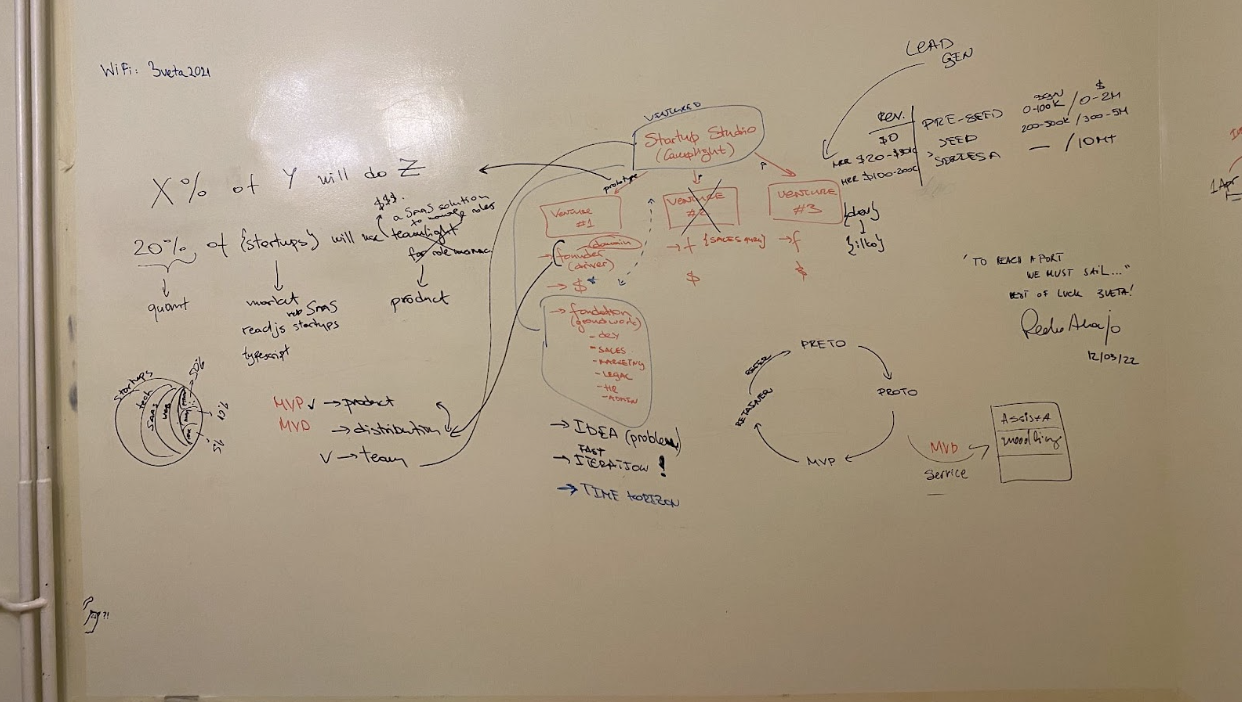 WiFi: 3veta2021
X% of Y will do Z
$$$.
a SaaS solution
to manage roles
20% of {startups} will use teamlight
for role manac
quant
market
web SaaS
readjs startups
typescript
product
startups
tech
SaaS
web
50%
5%
MVP v → product
MVD → distribution
v → team
VENTURED
Startup Studio
(Camplight)
prototype
VENTURE
#1
VENTURE
#2
VENTURE
#3
domain
→ founder
(driver)
→ $ *
→ f {SALES
$
→ f
$
{dev}
{ilko}
→ foundation
(groundwork)
- DEV
- SALES
- MARKETING
- LEGAL
- HR
- ADMIN
→ IDEA (problem)
FAST
→ ITERATION !
→ TIME HORIZON
LEAD
GEN
REV.
$0
MRR
MRR $100-200K
PRE-SEED
SEED
SERIES A
BGN / $
0-100K / 0-2M
200-500K / 300-5M
— / 10M+
PRETO
PROTO
MVP
RETAINER
REFER
MVD
Service
Assista
moodling
"TO REACH A PORT
WE MUST SAIL..."
BEST OF LUCK 3VETA!
Pedro Araujo
12/03/22
1 Apr